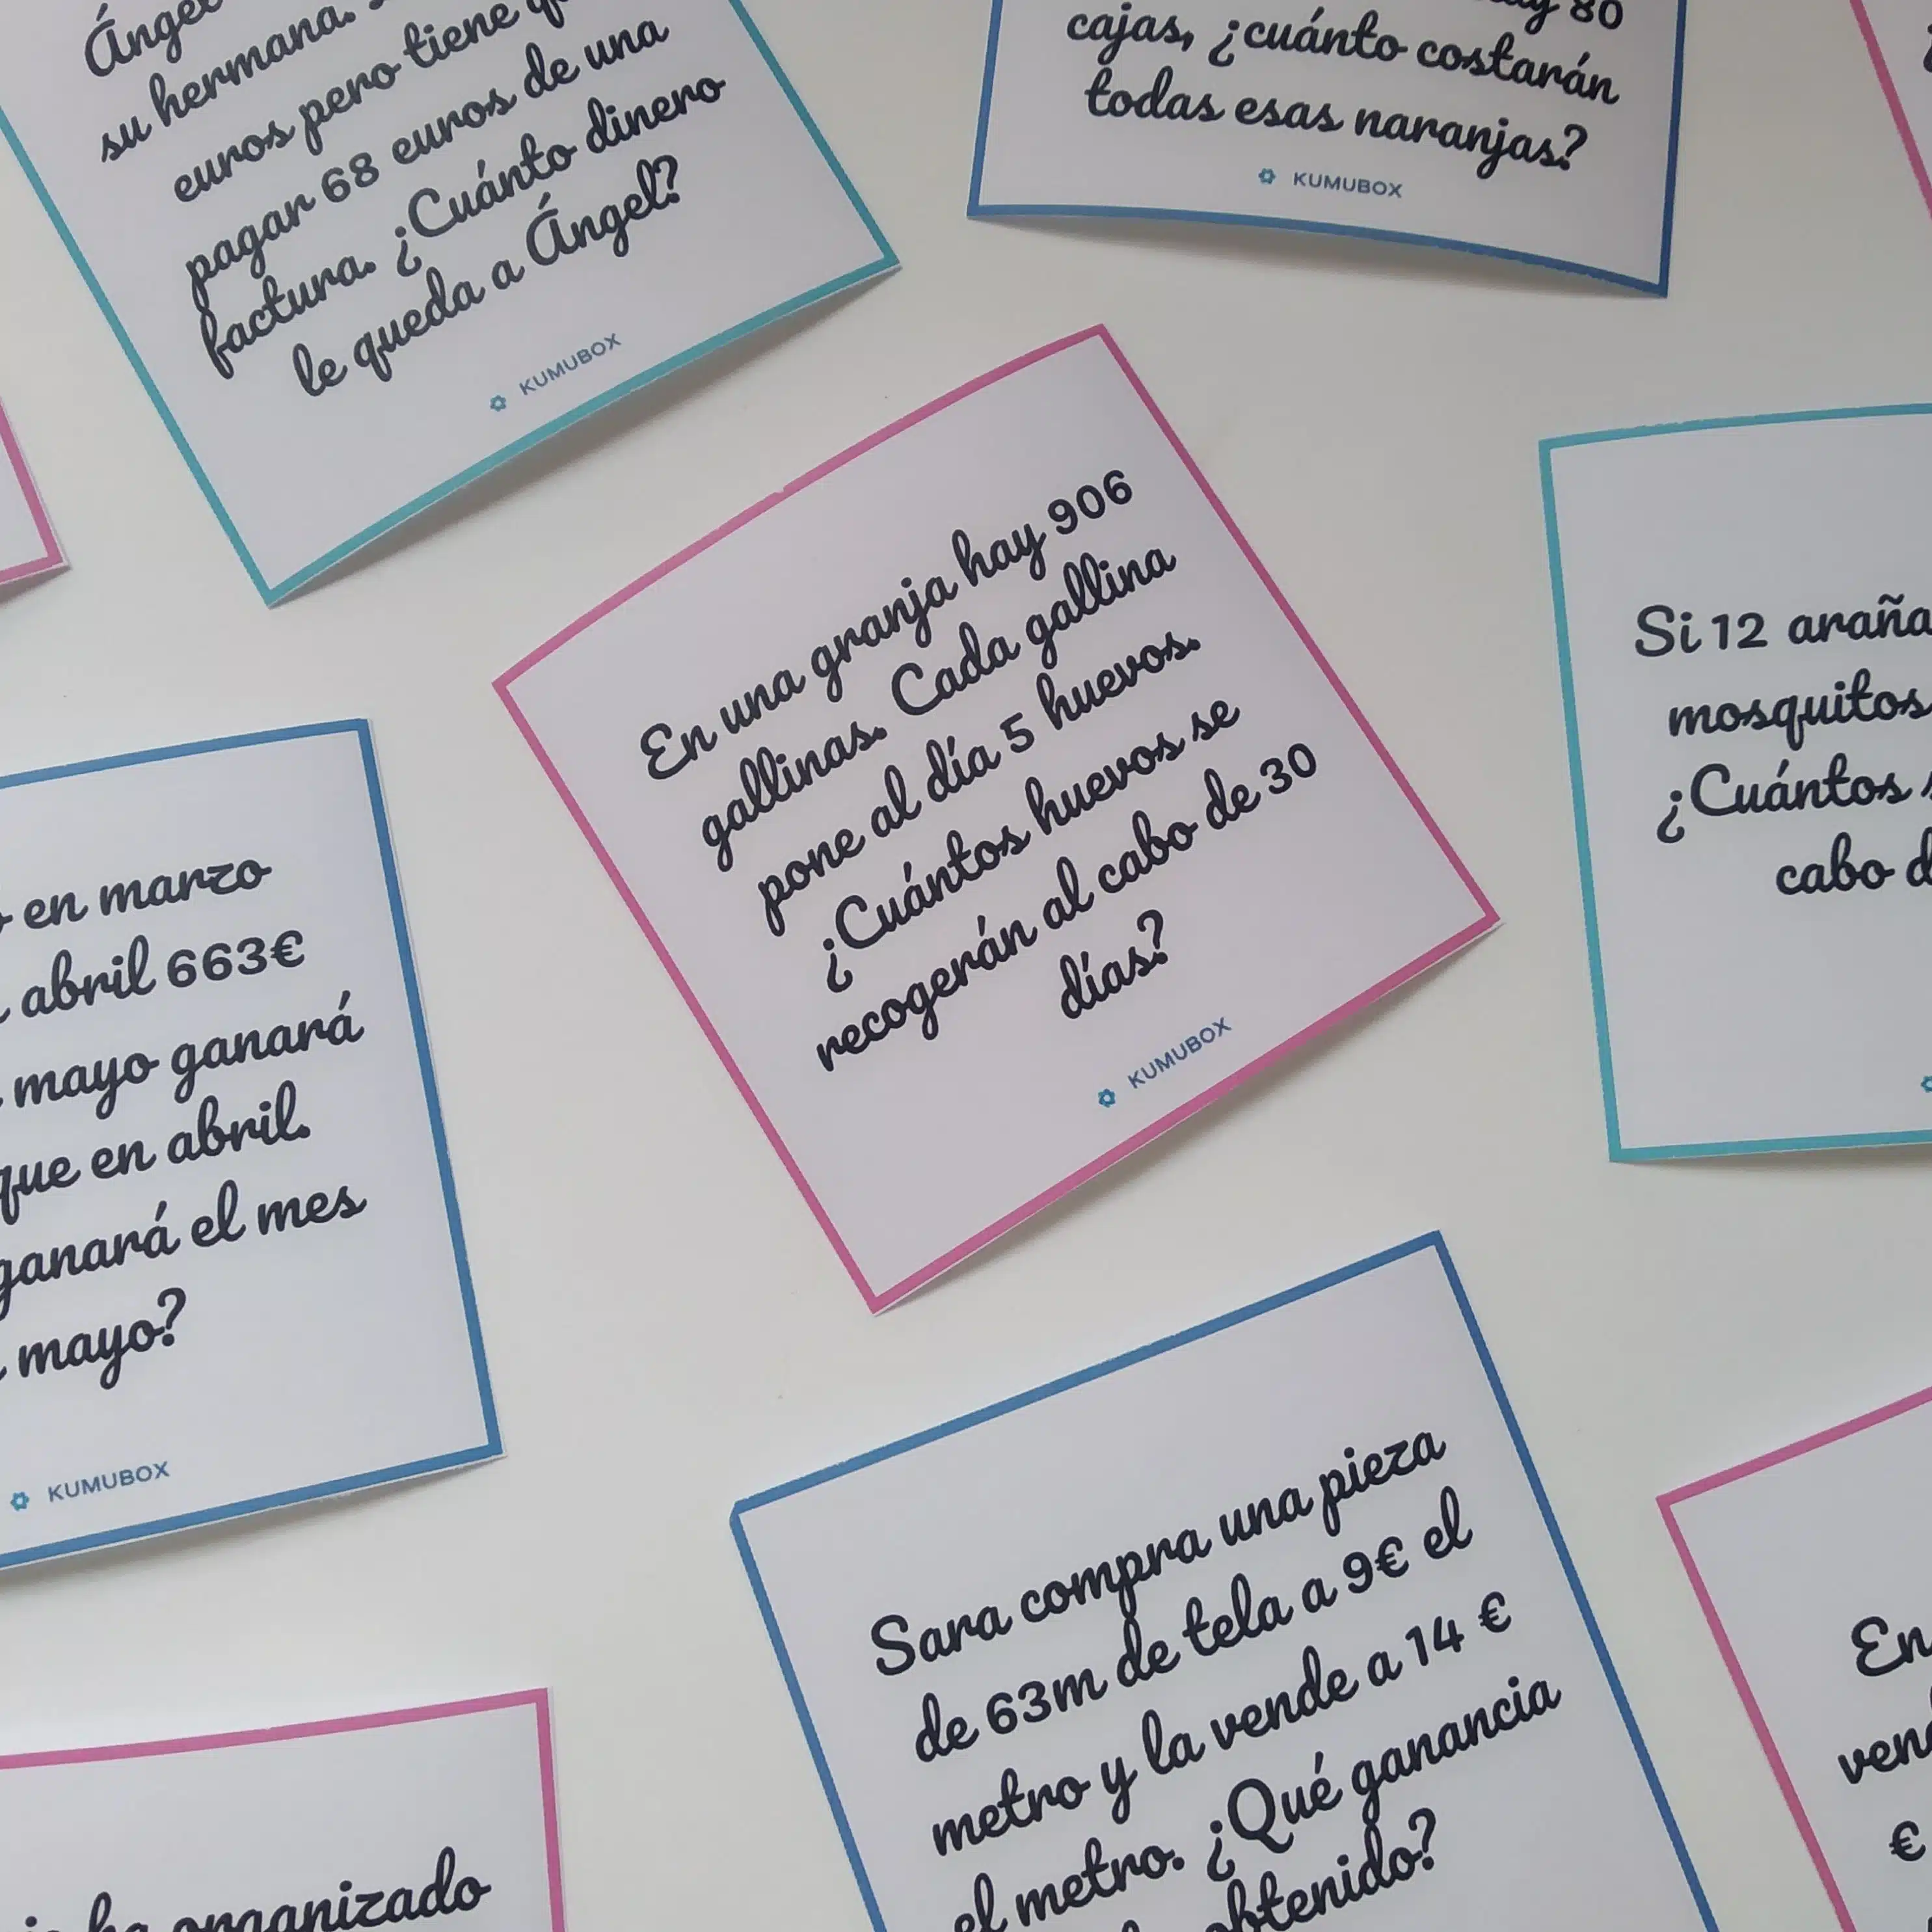 su hermana.
euros pero tiene
pagar 68 euros de una
factura. ¿Cuánto dinero
le queda a Ángel?
KUMUBOX
80
cajas, ¿cuánto costarán
todas esas naranjas?
KUMUBOX
En una granja hay 906
gallinas. Cada gallina
pone al día 5 huevos.
¿Cuántos huevos se
recogerán al cabo de 30
días?
KUMUBOX
Si 12
mosquitos
¿Cuántos
cabo
en marzo
abril 663€
mayo ganará
que en abril.
ganará el mes
mayo?
KUMUBOX
Sara compra una pieza
de 63m de tela a 9€ el
metro y la vende a 14 €
el metro. ¿Qué ganancia
obtenido?
En
€
organizado